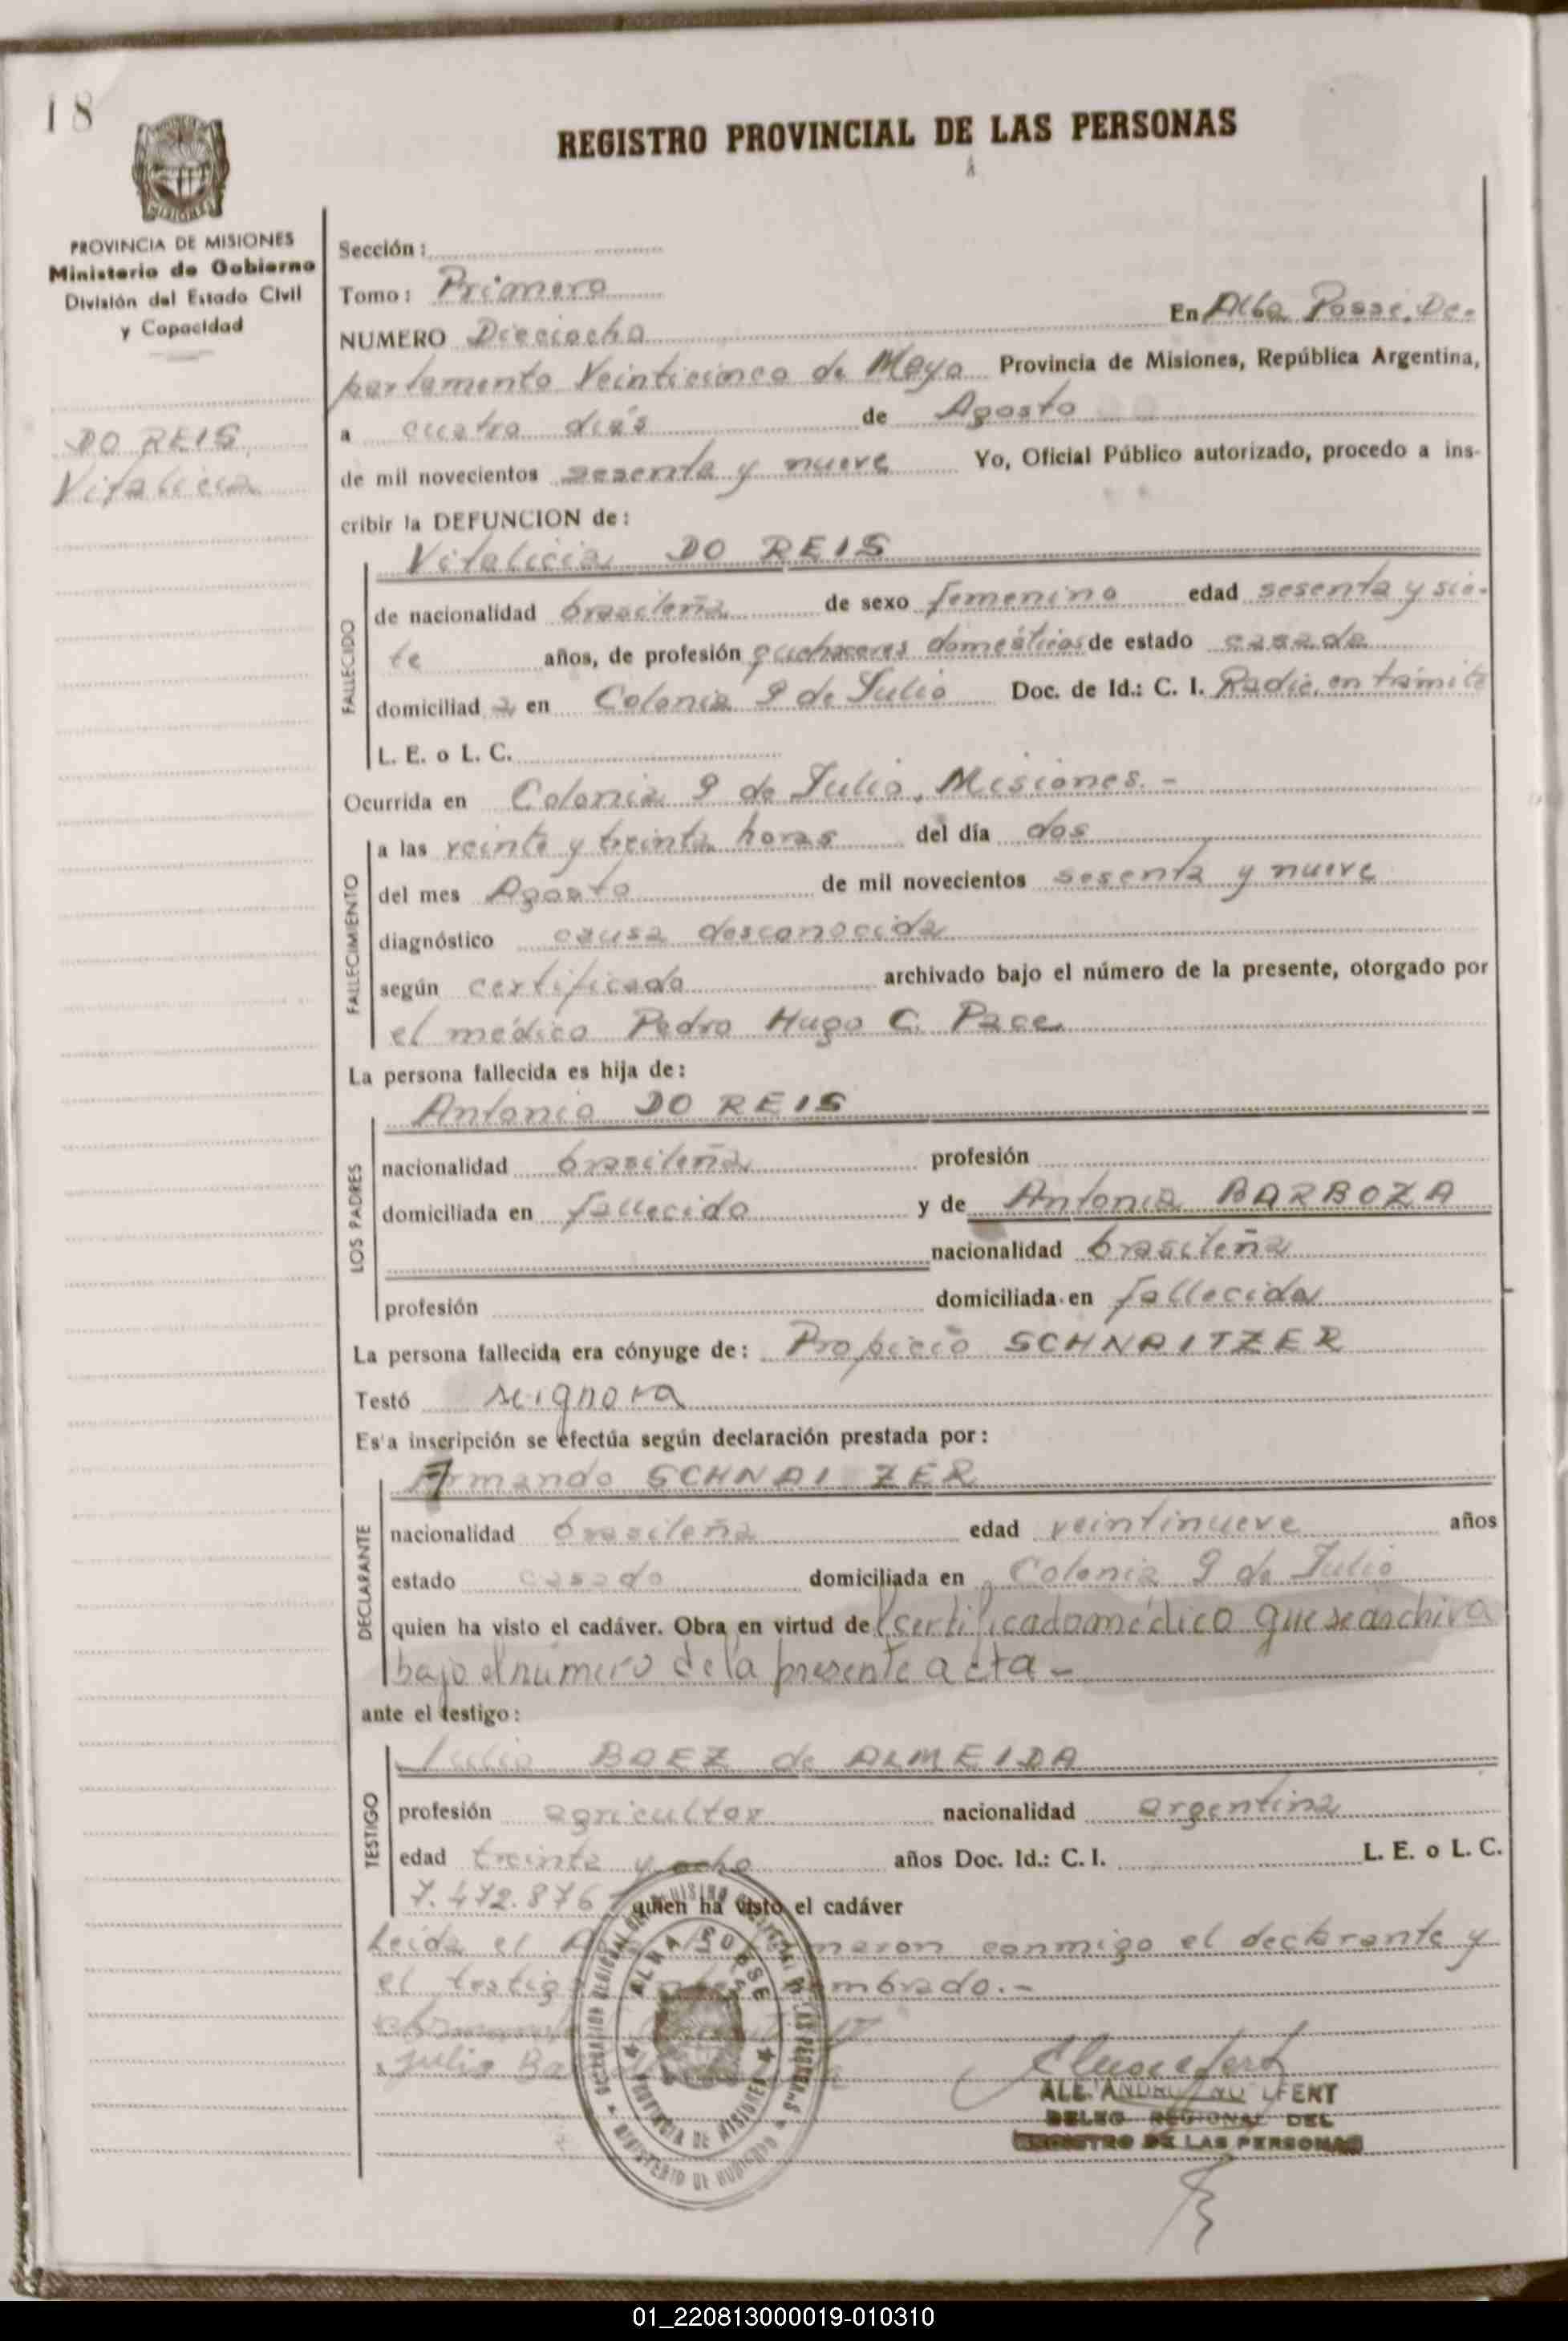 18
REGISTRO PROVINCIAL DE LAS PERSONAS
PROVINCIA DE MISIONES
Ministerio de Gobierno
División del Estado Civil
y Capacidad
DO REIS
Vitalicia
Sección:
Tomo: Primero
NUMERO Dieciocho En Alba Posse, De-
partamento Veinticinco de Mayo Provincia de Misiones, República Argentina,
a cuatro días de Agosto
de mil novecientos sesenta y nueve Yo, Oficial Público autorizado, procedo a ins-
cribir la DEFUNCION de:
Vitalicia DO REIS
FALLECIDO
de nacionalidad brasileña de sexo femenino edad sesenta y sie-
te años, de profesión quehaceres domésticos de estado casada
domiciliad a en Colonia 9 de Julio Doc. de Id.: C. I. Radic. en trámite
L. E. o L. C.
Ocurrida en Colonia 9 de Julio, Misiones.-
FALLECIMIENTO
a las veinte y treinta horas del día dos
del mes Agosto de mil novecientos sesenta y nueve
diagnóstico causa desconocida
según certificado archivado bajo el número de la presente, otorgado por
el médico Pedro Hugo C. Pace
La persona fallecida es hija de:
Antonio DO REIS
LOS PADRES
nacionalidad brasileña profesión
domiciliada en fallecido y de Antonia BARBOZA
nacionalidad brasileña
profesión domiciliada en fallecida
La persona fallecida era cónyuge de: Propicio SCHNAITZER
Testó se ignora
Es'a inscripción se efectúa según declaración prestada por:
Armando SCHNAI ZER
DECLARANTE
nacionalidad brasileña edad veintinueve años
estado casado domiciliada en Colonia 9 de Julio
quien ha visto el cadáver. Obra en virtud del certificado médico que se archiva
bajo el número de la presente acta -
ante el testigo:
Julio BAEZ de ALMEIDA
TESTIGO
profesión agricultor nacionalidad argentina
edad treinta y ocho años Doc. Id.: C. I. L. E. o L. C.
7.472.876 quien ha visto el cadáver
Leída el conmigo el declarante y
el
Julio
ALBA POSSE
PROVINCIA DE MISIONES
MINISTERIO DE GOBIERNO
DELEG REGIONAL DEL
REGISTRO DE LAS PERSONAS
01_220813000019-010310